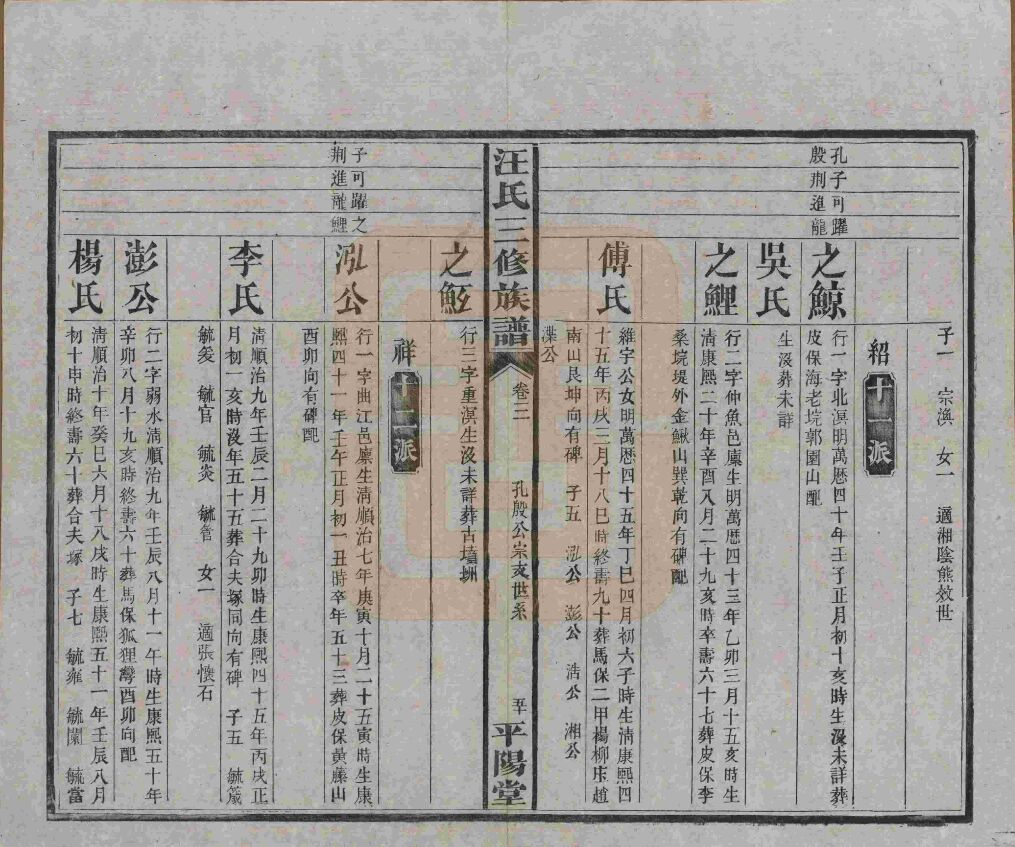 子一　宗渙　女一　適湘陰熊效世
紹十一派
孔子可躍
殷荆進龍
之鯨
行一字北溟明萬歷四十年壬子正月初十亥時生沒未詳葬
皮保海老垸郭園山配
吳氏
生沒葬未詳
之鯉
行二字仲魚邑廩生明萬歷四十三年乙卯三月十五亥時生
清康熙二十年辛酉八月二十九亥時卒壽六十七葬皮保李
桑垸堤外金鰍山巽乾向有碑配
傅氏
維宇公女明萬歷四十五年丁巳四月初六子時生清康熙四
十五年丙戌三月十八巳時終壽九十葬馬保二甲楊柳庄趙
南山艮坤向有碑　子五　泓公　澎公　浩公　湘公
渫公
汪氏三修族譜
卷三
孔殷公宗支世系
平陽堂
之魟
行三字重溟生沒未詳葬古墳洲
祥十二派
子可躍之
荆進龍鯉
泓公
行一字曲江邑廩生清順治七年庚寅十月二十五寅時生康
熙四十一年壬午正月初一丑時卒年五十三葬皮保黃藤山
酉卯向有碑配
李氏
清順治九年壬辰二月二十九卯時生康熙四十五年丙戌正
月初一亥時沒年五十五葬合夫塚同向有碑　子五　毓箴
毓爰　毓官　毓炎　毓管　女一　適張懷石
澎公
行二字弱水清順治九年壬辰八月十一午時生康熙五十年
辛卯八月十九亥時終壽六十葬馬保狐狸灣酉卯向配
楊氏
清順治十年癸巳六月十八戌時生康熙五十一年壬辰八月
初十申時終壽六十葬合夫塚　子七　毓雍　毓闌　毓當